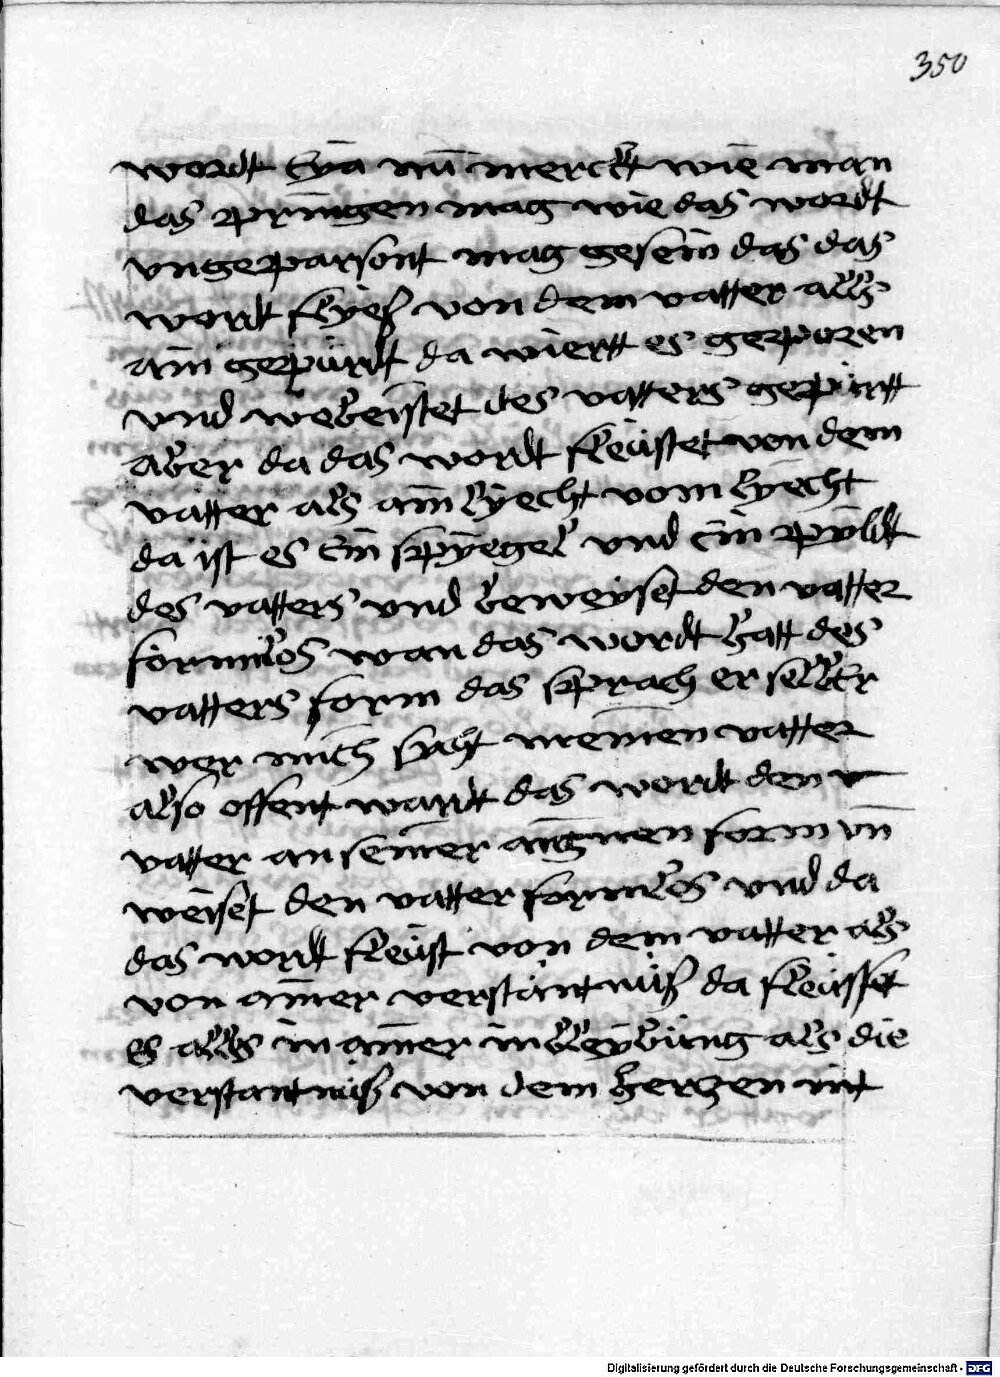 350
wordt Eya nu merckt wie man
das pringen mag wie das wordt
ungeparsont mag gesein das das
wordt flyeß von dem vatter alls
ain gepürdt da wiertt es geporen
und webeistet des vatters gepürtt
aber da das wordt fleüstet von dem
vatter als ain lyecht vom lyecht
da ist es Ein spyegel und Ein pyldt
des vatters und beweyset den vatter
formlos wan das wordt hatt des
vatters form das sprach er selber
wer mich sycht meinen vatter
also offent wardt das wordt den v
vatter an seiner aignen form vn̄
weiset den vatter formlos und da
das wordt fleüst von dem vatter als
von ainer verstäntnüß da fleüsset
es alls in ainer inbleybung als die
verstantnüß von dem herczen nit
Digitalisierung gefördert durch die Deutsche Forschungsgemeinschaft - DFG